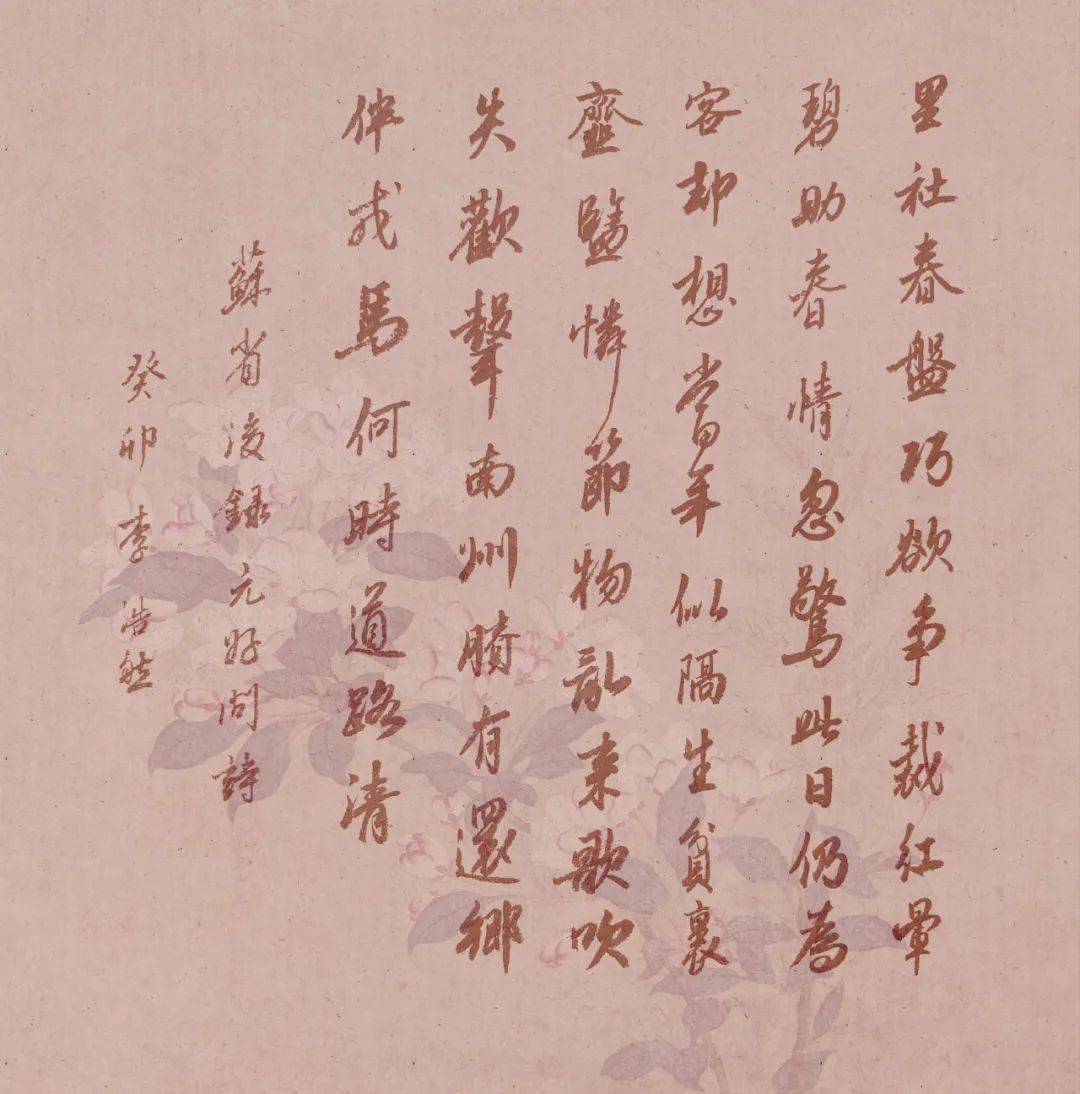 里社春盤巧欲争裁红暈
碧助春情忽驚此日仍為
客却想當年似隔生貧裏
齏鹽憐節物亂来歌吹
失歡聲南州賸有還鄉
伴戎馬何時道路清
蘇省凌録元好問詩
癸卯李浩然